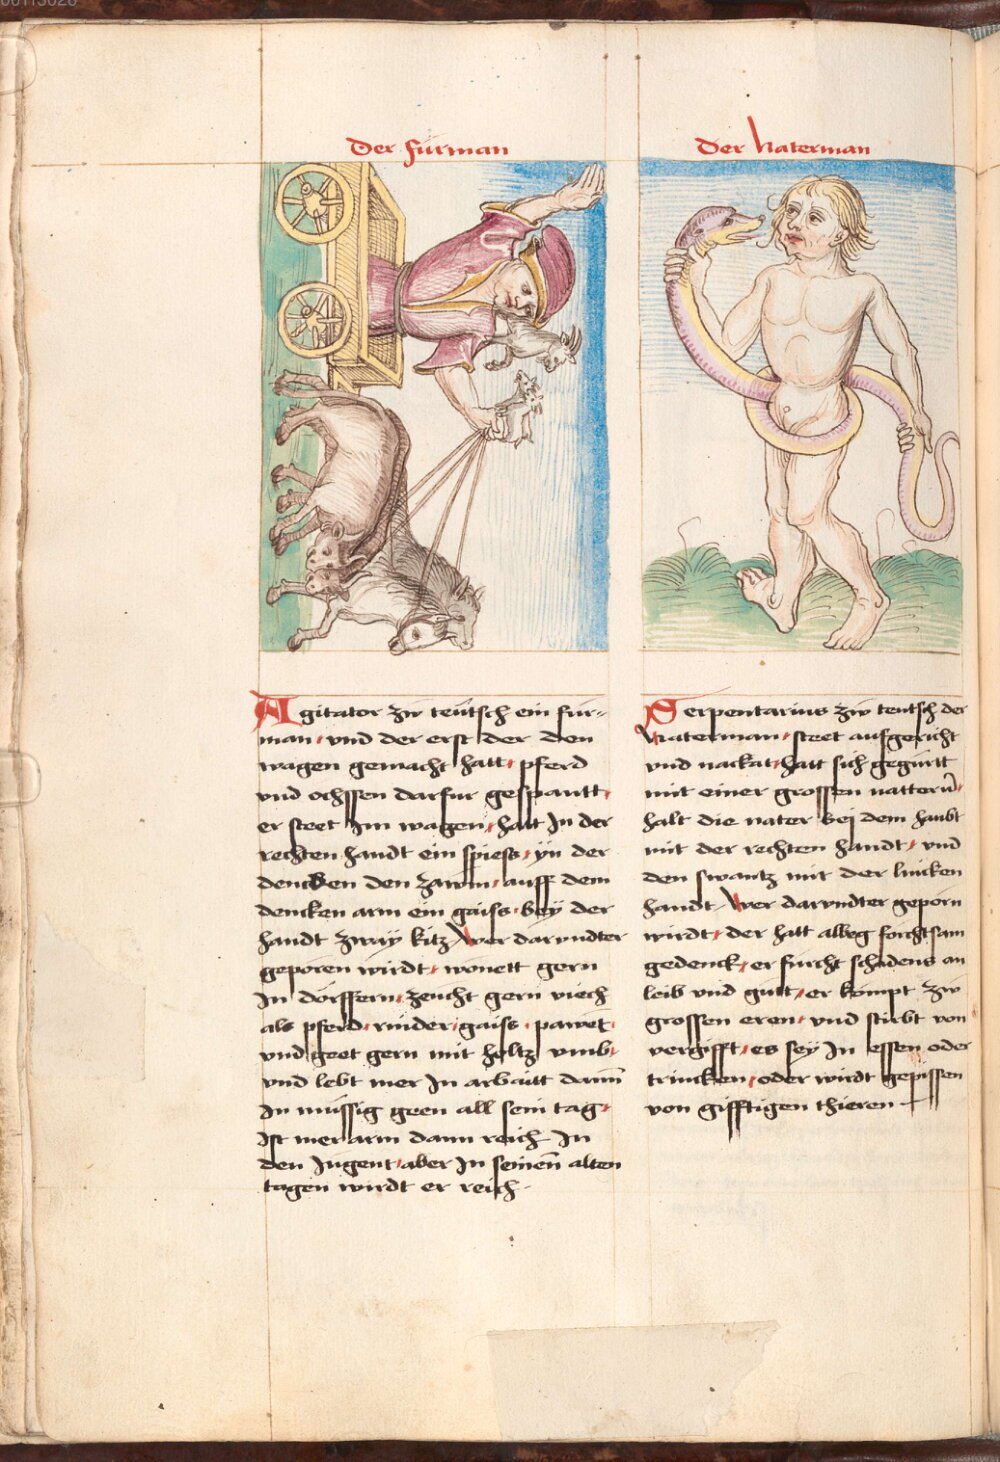 Der furman
Agitator zw teütsch ein fur-
man, vnd der erst der den
wagen gemacht hatt, pferd
vnd ochssen darfur gespantt,
er steet Im wagen, hatt In der
rechten handt ein spiess, yn der
dencken den zawm, auff dem
dencken arm ein gaiss, bey der
handt zwaÿ kitz, Wer darvndter
geporen wirdt, wonett gern
In dörffern, zeücht gern viech
als pferd, rinder, gaiss, pawet,
vnd geet gern mit holtz vmb,
vnd lebt mer In arbaitt dann
In müssig geen all sein tag,
Ist mer arm dann reich In
den Jugent, aber In seinen alten
tagen wirdt er reich.
Der Naterman
Serpentarius zw teutsch der
Naterman, steet aufgericht
vnd nackat, hatt sich gegürtt
mit einer grossen nattern,
halt die nater bej dem haubt
mit der rechten handt, vnd
den swantz mit der lincken
handt, Wer darvndter geporn
wirdt, der hatt albeg forchtsam
gedenck, er fürcht schadens an
leib vnd gütt, er kompt zw
grossen eren, vnd stirbt von
vergifft, es sey In essen oder
trincken, oder wirdt gepissen
von gifftigen thieren